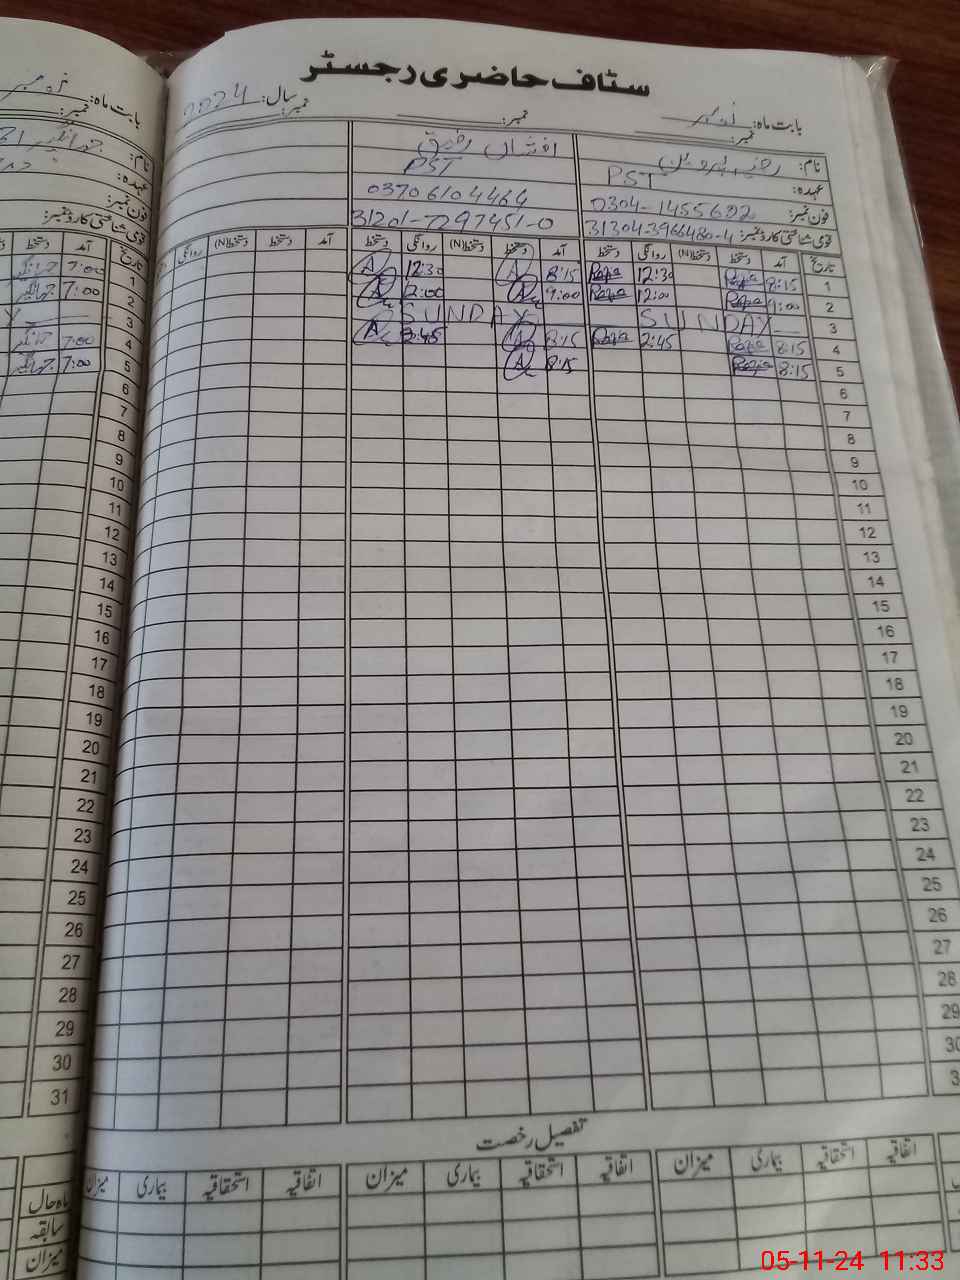 سٹاف حاضری رجسٹر
بابت ماہ: نومبر نمبر: سال: 2024
نمبر: نمبر:
نام: پروین افشاں رفیق
عہدہ: PST PST
فون نمبر: 0304-1455692 03706104464
قومی شناختی کارڈ نمبر: 313043966480-4 31201-7297451-0
تاریخ آمد دستخط دستخط(N) روانگی دستخط آمد دستخط دستخط(N) روانگی دستخط آمد دستخط دستخط(N) روانگی
1 8:15 12:30 8:15 12:30
2 9:00 12:00 9:00 12:00
3 SUNDAY SUNDAY
4 8:15 2:45 8:15 2:45
5 8:15 8:15
6
7
8
9
10
11
12
13
14
15
16
17
18
19
20
21
22
23
24
25
26
27
28
29
30
3
تفصیل رخصت
اتفاقیہ استحقاقیہ بیماری میزان اتفاقیہ استحقاقیہ بیماری میزان اتفاقیہ استحقاقیہ بیماری میزان
بابت ماہ: نومبر
نمبر:
نام:
عہدہ:
فون نمبر:
قومی شناختی کارڈ نمبر:
تاریخ آمد دستخط
1 7:00
2 7:00
3 Y
4 7:00
5 7:00
6
7
8
9
10
11
12
13
14
15
16
17
18
19
20
21
22
23
24
25
26
27
28
29
30
31
ماہ حال
سابقہ
میزان
05-11-24 11:33